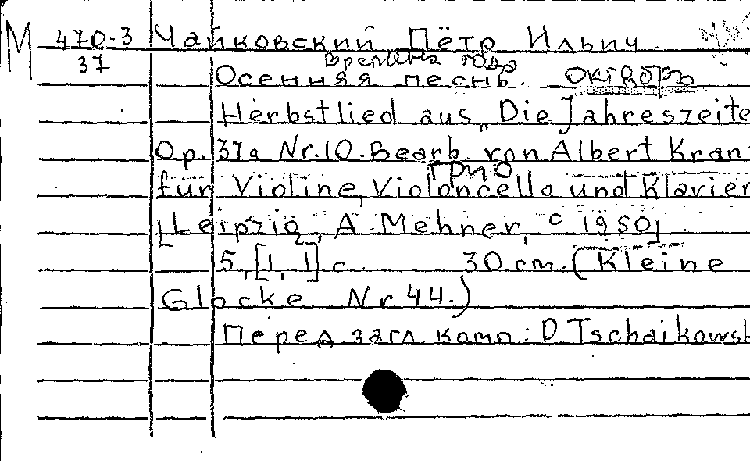 М 470-3 Чайковский Пётр Ильич
37 времена года
Осенняя песнь. октябрь
Herbstlied aus „Die Jahreszeite
Op. 37a Nr.10. Bearb. von Albert Kran
трио
für Violine, Violoncello und Klavier
[Leipzig, A Mehner, c 1950]
5, [1, 1] с. 30 cm. (Kleine
Glocke Nr 44.)
Перед загл. комп.: Tschaikowsk